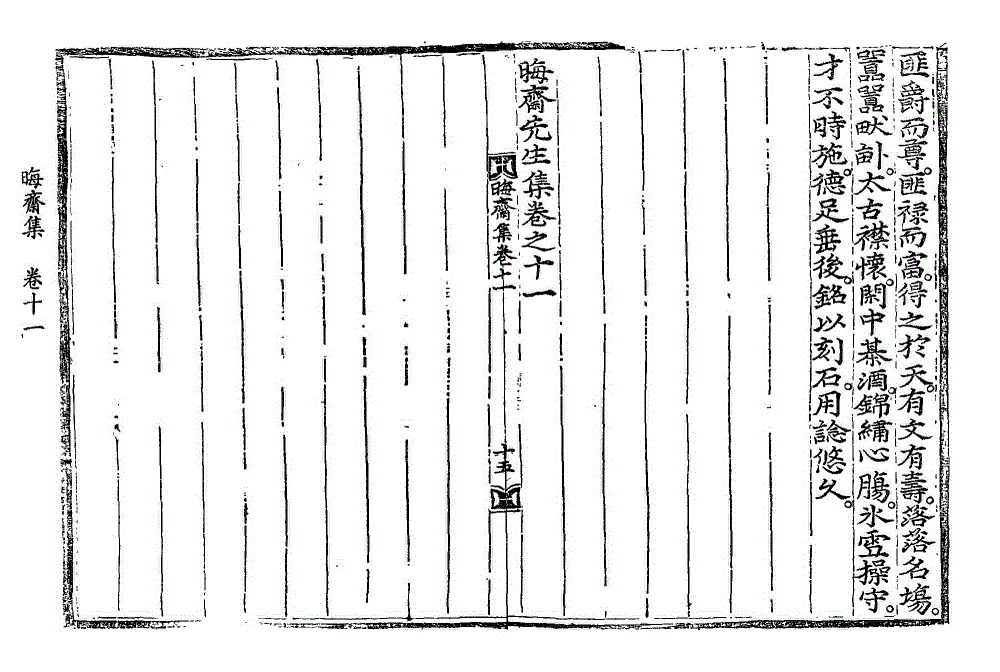 匪爵而尊。匪祿而富。得之於天。有文有壽。落落名場。
囂囂畎畝。太古襟懷。閑中棊酒。錦繡心膓。氷雪操守。
才不時施。德足垂後。銘以刻石。用諗悠久。
晦齋先生集卷之十一
晦齋集卷十一
十五
晦齋集 卷十一